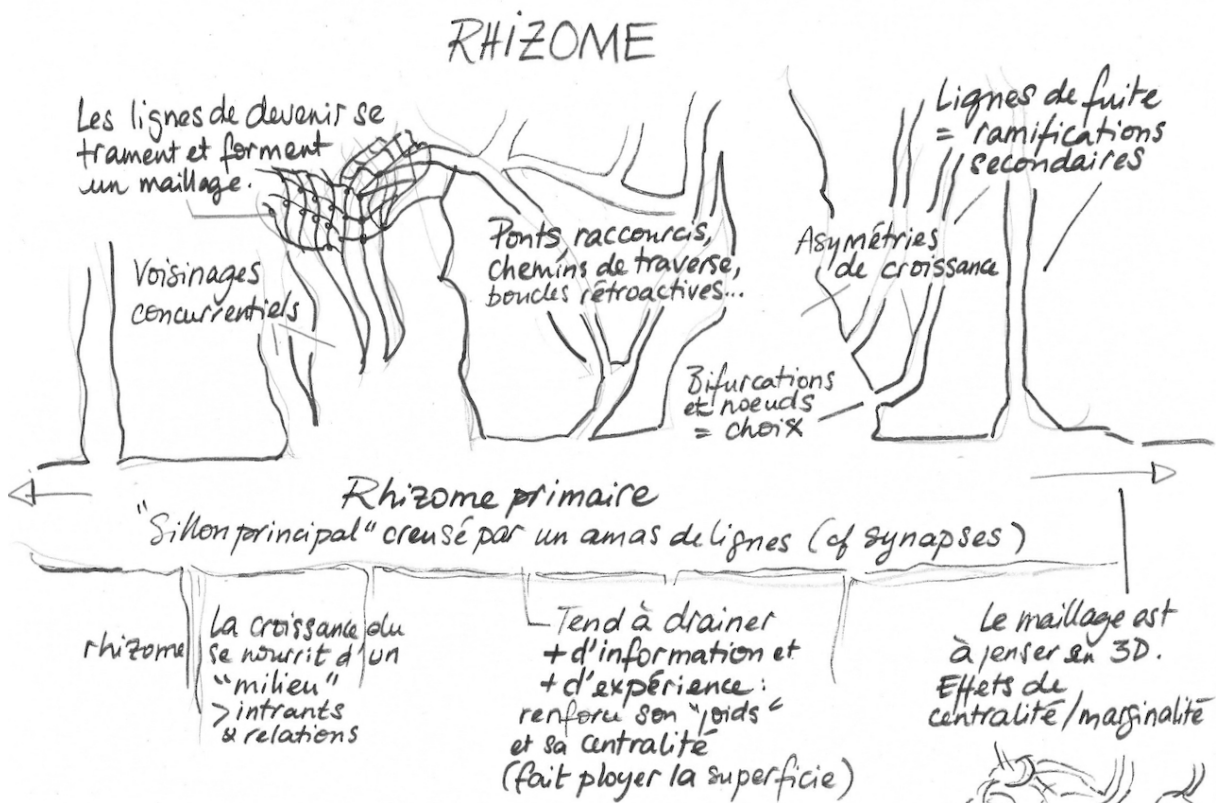 RHIZOME
Les lignes de devenir se
trament et forment
un maillage.
Lignes de fuite
= ramifications
secondaires
Voisinages
concurrentiels
Ponts raccourcis,
chemins de traverse,
boucles rétroactives...
Asymétries
de croissance
Bifurcations
et noeuds
= choix
Rhizome primaire
"Sillon principal" creusé par un amas de lignes (cf synapses)
rhizome
La croissance du
se nourrit d'un
"milieu"
> intrants
& relations
Tend à drainer
+ d'information et
+ d'expérience :
renforce son "poids"
et sa centralité
(fait ployer la superficie)
Le maillage est
à penser en 3D.
Effets de
centralité/marginalité